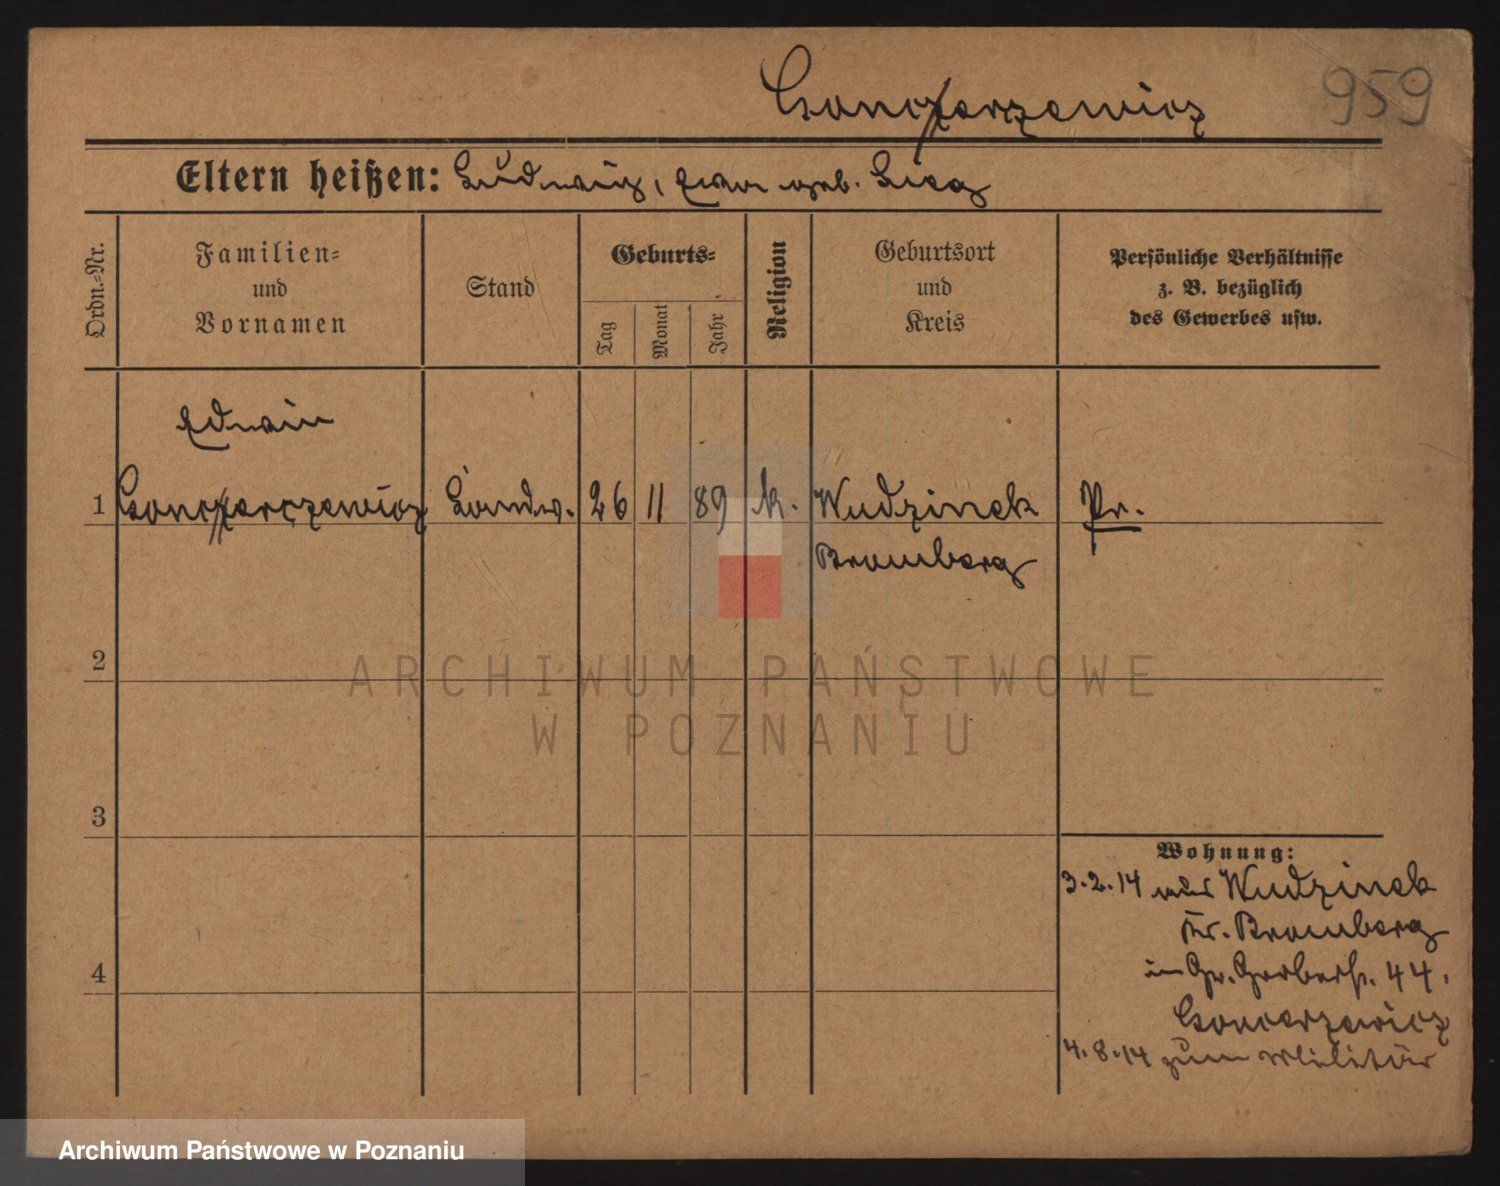 Goncerzewicz
959
Eltern heißen: Ludwig, Ewa geb.
Ordn.-Nr.
Familien-
und
Vornamen
Stand
Geburts-
Tag
Monat
Jahr
Religion
Geburtsort
und
Kreis
Persönliche Verhältnisse
z. B. bezüglich
des Gewerbes usw.
Edwin
1 Goncerzewicz Landw. 26 11 89 k. Wudzinek Pr.
Bromberg
2
3
4
Wohnung:
3.2.14 aus Wudzinek
Kr. Bromberg
in Gr. Gerberstr. 44.
Goncerzewicz
4.8.14 zum Militär
ARCHIWUM PAŃSTWOWE
W POZNANIU
Archiwum Państwowe w Poznaniu